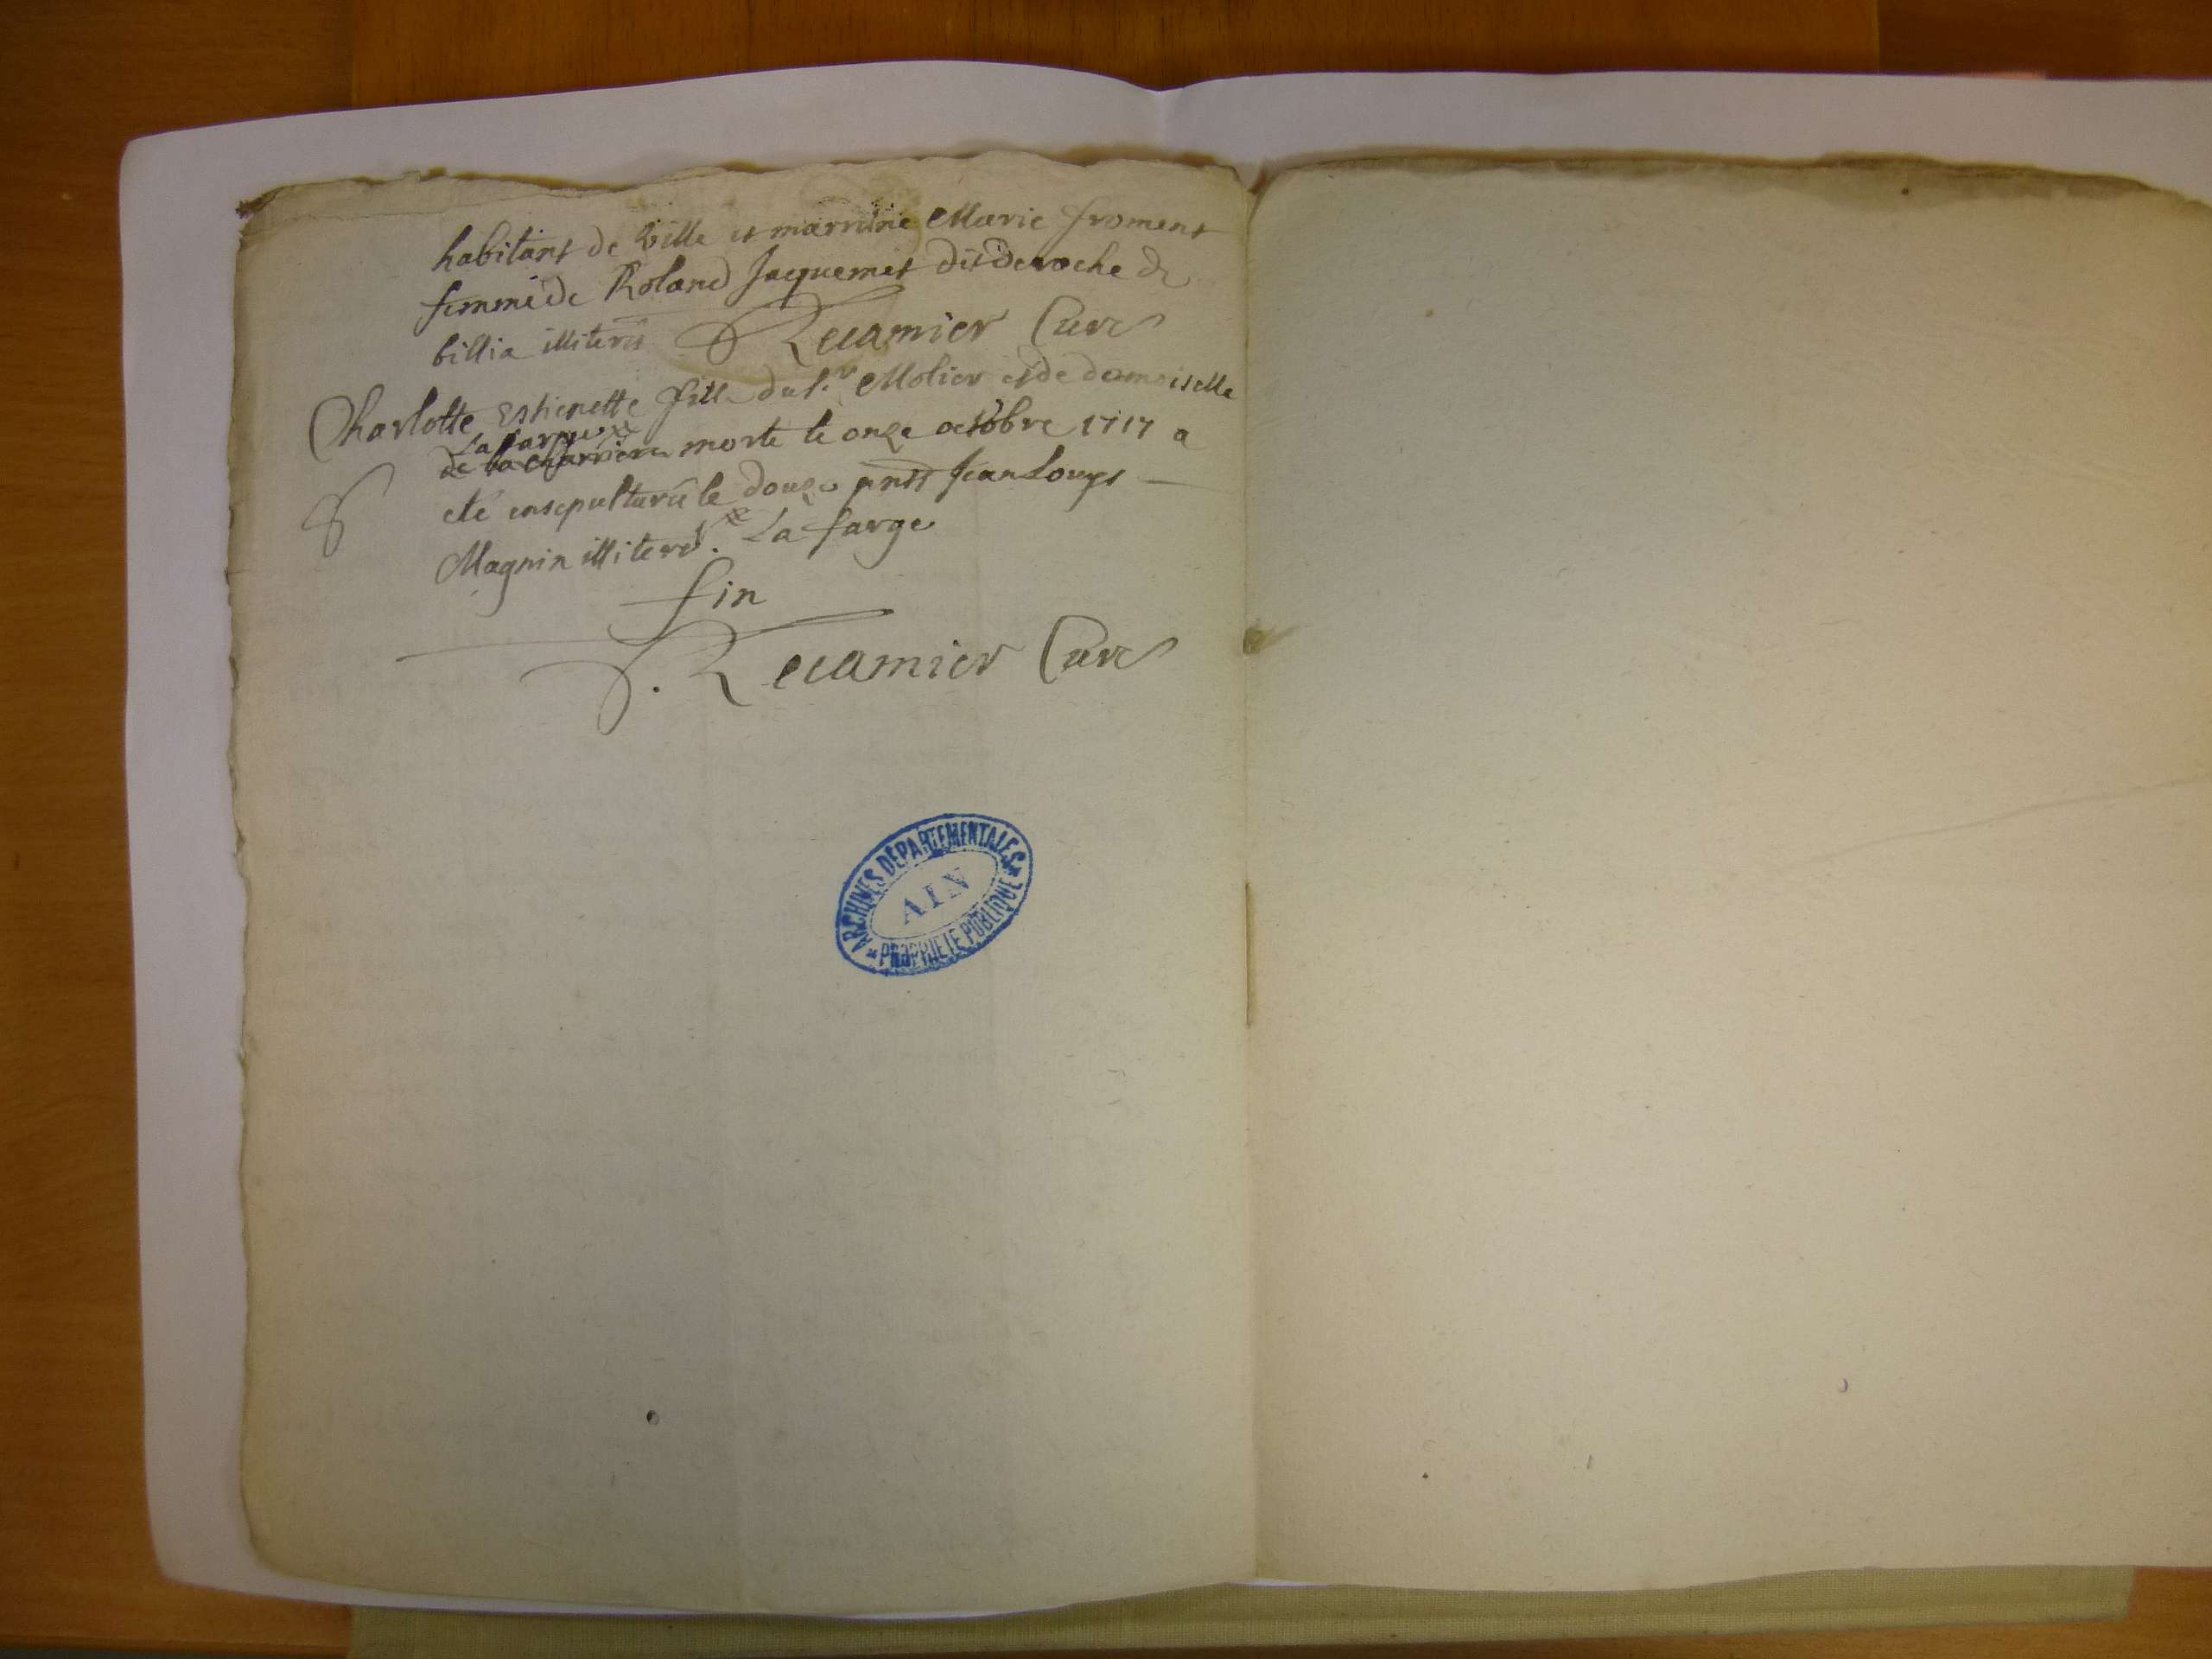 habitant de Ville et marrine Marie froment
femme de Roland Jacquemet dit deroche de
billia illiterés Recamier Curé
Charlotte Estienette fille du Sr. Molier et de damoiselle
La farge
de la charriere morte le onze octobre 1717 a
eté ensepulturée le douze pnts Jean Louys
Magnin illiteré. La farge
fin
Recamier Curé
ARCHIVES DÉPARTEMENTALES
AIN
PROPRIÉTÉ PUBLIQUE